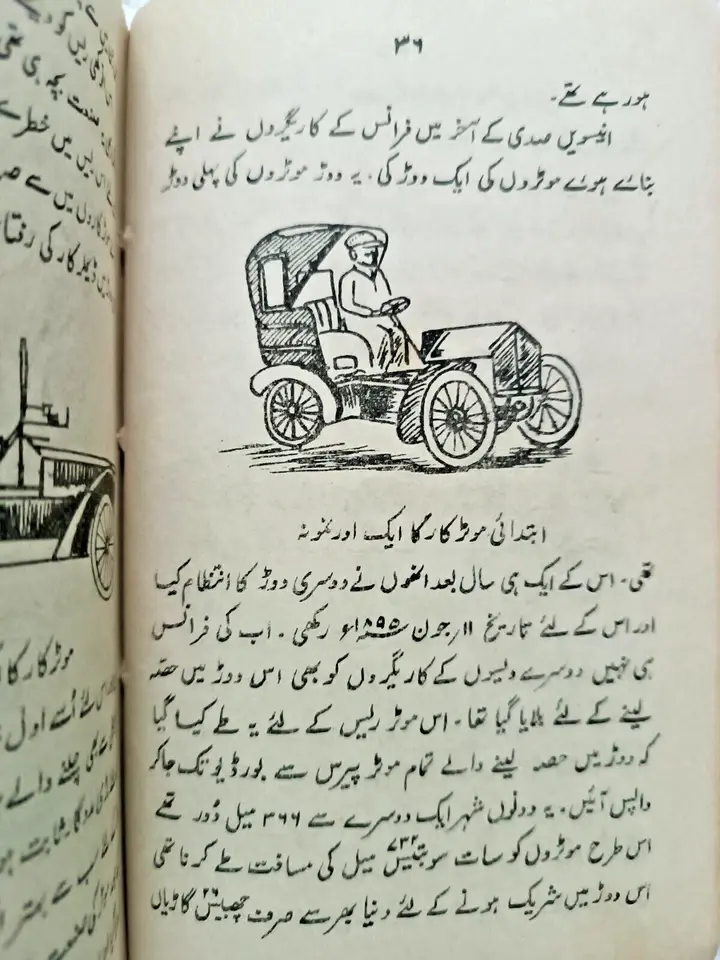 ۳۶
ہو رہے تھے۔
انیسویں صدی کے آخر میں فرانس کے کاریگروں نے اپنے
بنائے ہوئے موٹروں کی ایک دوڑ کی۔ یہ دوڑ موٹروں کی پہلی دوڑ
ابتدائی موٹر کار کا ایک اور نمونہ
تھی۔ اس کے ایک ہی سال بعد انھوں نے دوسری دوڑ کا انتظام کیا
اور اس کے لئے تاریخ ۱۱؍جون ۱۸۹۵ء رکھی۔ اب کی فرانس
ہی نہیں دوسرے دیسوں کے کاریگروں کو بھی اس دوڑ میں حصّہ
لینے کے لئے بلایا گیا تھا۔ اس موٹر ریس کے لئے یہ طے کیا گیا
کہ دوڑ میں حصہ لینے والے تمام موٹر پیرس سے بورڈیو تک جاکر
واپس آئیں۔ یہ دونوں شہر ایک دوسرے سے ۳۶۶ میل دُور تھے
اس طرح موٹروں کو سات سو بتیس ۷۳۲ میل کی مسافت طے کرنا تھی
اس دوڑ میں شریک ہونے کے لئے دنیا بھر سے صرف چھبیس ۲۶ گاڑیاں
موٹر کار کا
میں خطرے
کار کی رفتا
اول
چلنے والے
ثابت ہو
سے بہتر